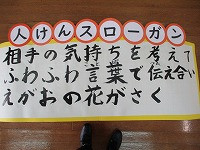 人けんスローガン
相手の気持ちを考えて
ふわふわ言葉で伝え合い
えがおの花がさく